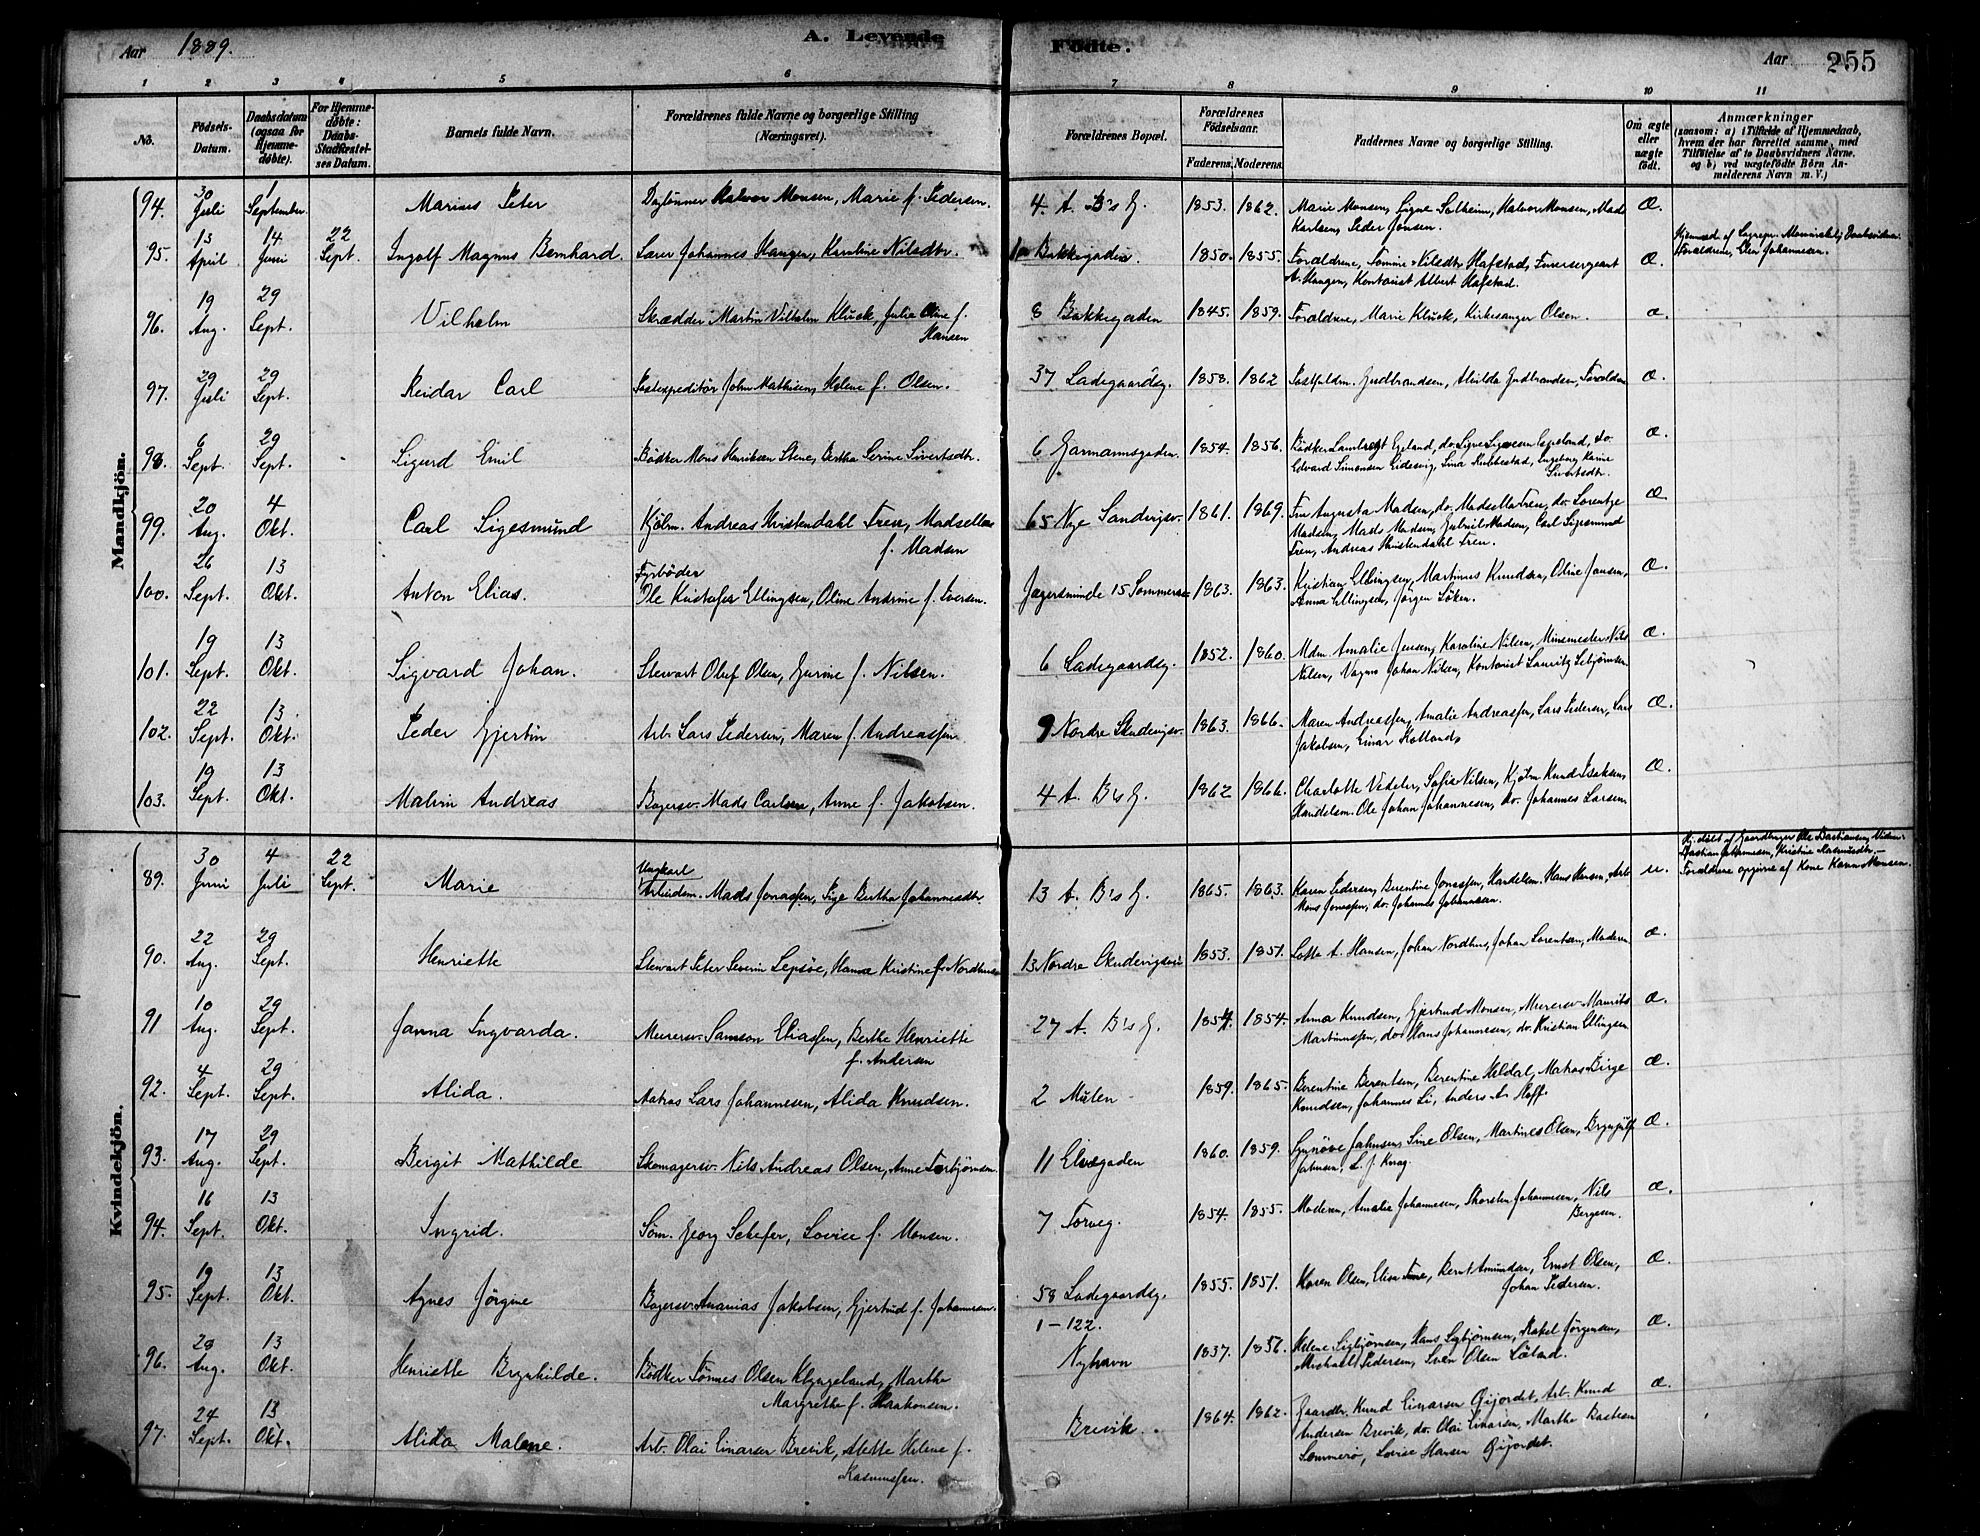 Aar 1889. A. Levende Födte. Aar 255
1 2 3 4 5 6 7 8 9 10 11
No. Födsels-Datum. Daabsdatum (ogsaa for Hjemme-døbte). For Hjemme-døbte: Daabs-Stadfæstel-ses Datum. Barnets fulde Navn. Forældrenes fulde Navne og borgerlige Stilling (Næringsvei). Forældrenes Bopæl. Forældrenes Födselsaar. Faderens. Moderens. Faddernes Navne og borgerlige Stilling. Om ægte eller uægte födt. Anmærkninger (saasom: a) i Tilfælde af Hjemmedaab, hvem der har forrettet samme, med Tilföielse af to Daabsvidners Navne, og b) ved uægtefödte Börn An-melderens Navn m. V.)
Mandkjön.
94. 30 Juli 1 September. Marius Peter Daglönner Halvor Monsen, Marie f. Pedersen. 4. A. B's G. 1853. 1862. Marie Monsen, Signe Solheim, Halvor Monsen, Mads
Karlsen, Peder Jonsen. Æ.
95. 13 April 14 Juni 22 Sept. Ingolf Magnus Bernhard. Lærer Johannes Haugen, Karoline Nilsdtr. 10 Bakkegaden. 1850. 1855. Forældrene, Tomine Nilsdtr Hafstad, Furersergeant
A. Haugen, Kontorist Albert Hafstad. Æ.
Forældrene, Elen Johannesen.
96. 19 Aug. 29 Sept. Vilhelm Skrædder Martin Vilhelm Kluck, Julie Oline f.
Hansen 8 Bakkegaden 1845. 1859. Forældrene, Marie Kluck, Kirkesanger Olsen. æ.
97. 29 Juli 29 Sept. Reidar Carl Postexpeditör John Mathisen, Helene f. Olsen. 37 Ladegaardsg. 1858. 1862 Postfuldm. Gudbrandsen, Alvilda Gudbrandsen, Forældrene Æ.
98. 6 Sept. 29 Sept. Sigurd Emil Bödker Mons Henriksen Stene, Bertha Serine Sivertsdtr. 6 Garmannsgaden. 1854. 1856. Bödker Lambregt Egeland, do. Sigve Espeland, do.
Edvard Simonsen Eidesvig, Sina Kubbestad, Ingeborg Karine
Sivertsdtr. Æ.
99. 20 Aug. 4 Okt. Carl Sigesmund Kjölm. Andreas Kristendahl Tren, Madsella
f. Madsen 65 Nye Sandvigsv. 1861. 1869. Fru Augusta Madsen, do. Madsella Tren, do. Lorentze
Madsen, Mads Madsen, Gabriel Madsen, Carl Sigesmund
Tren, Andreas Kristendahl Tren. Æ
100. 26 Sept. 13 Okt. Anton Elias. Fyrböder
Ole Kristofer Ellingsen, Oline Andrine f. Iversen. Jægersminde 15 1863. 1863. Kristian Ellingsen, Martinus Knudsen, Oline Jansen,
Anna Ellingsen, Jörgen Löken. Æ.
101. 19 Sept. 13 Okt. Sigvard Johan. Stewart Oluf Olsen, Gurine f. Nilsen. 6 Ladegaardsg. 1852. 1860. Mdm. Amalie Jensen, Karoline Nilsen, Minemester Nils
Nilsen, Vognm. Johan Nilsen, Kontorist Lauritz Æ.
102. 22 Sept. 13 Okt. Peder Gjertin Arb. Lars Pedersen, Maren f. Andreassen 9 Nordre Skudevigsv. 1863. 1866. Maren Andreassen, Amalie Andreassen, Lars Pedersen, Lars
Jakobsen, Einar Kolland. Æ.
103. 19 Sept. 13 Okt. Malvin Andreas Bagersv. Mads Carlsen, Anne f. Jakobsen. 4 A. B's G. 1862 1866. Charlotte Vedeler, Sofie Nilsen, Kjölm Knud Isaksen,
Handelsm. Ole Johan Johannesen, do. Johannes Larsen. Æ.
Kvindekjön.
89. 30 Juni 4 Juli 22 Sept. Marie Ungkarl
Arbeidsm. Mads Jonassen, Pige Bertha Johannesdtr. 13 A. B's G. 1865. 1863. Karen Pedersen, Berentine Jonassen, Handelsm. Hans Hansen, Arb.
Mons Jonassen, do. Johannes Johannesen. u. Hj. döbt af Gaardbruger Ole Bastiansen, Vidner:
Bastian Johannesen, Kristine Rasmusdtr. –
Forældrene opgivne af Kone Karen Monsen.
90. 22 Aug. 29 Sept. Henriette Stewart Peter Severin Lepsöe, Hanna Kristine f. Nordhuus 13 Nordre Skudevigsvei 1853. 1851. Lotta A. Hansen, Johan Nordhus, Johan Lorentsen, Moderen. Æ
91 10 Aug. 29 Sept. Janna Ingvarda. Murersv. Samson Eliassen, Berthe Henriette
f. Andersen 27 A. B's G. 1854. 1854. Anna Knudsen, Gjertrud Monsen, Murersv. Maurits
Martinussen, do. Hans Johannesen, do. Kristian Ellingsen. Æ.
92. 4 Sept. 29 Sept. Alida. Matros Lars Johannesen, Alida Knudsen. 2 Mulen 1859. 1865. Berentine Berentsen, Berentine Heldal, Matros Birge
Knudsen, Johannes Li, Anders A. Hoff. Æ.
93. 17 Aug. 29 Sept. Bergit Mathilde Skomagersv. Nils Andreas Olsen, Anne Torbjörnsen. 11 Elvegaden 1860. 1859. Synnöve Johnsen, Sine Olsen, Martines Olsen, Brynjulf
Johnsen, L. J. Knag. Æ.
94. 16 Sept. 13 Okt. Ingrid. Söm. Georg Schefer, Lovise f. Monsen. 7 Torveg. 1854. 1855. Moderen, Amalie Johannesen, Thorsten Johannesen, Nils
Bergesen. Æ.
95. 19 Sept. 13 Okt. Agnes Jörgine Bagersv. Ananias Jakobsen, Gjertrud f. Johannesen. 58 Ladegaardsg. 1855. 1851. Karen Olsen, Elisa Bernt Amundsen, Ernst Olsen,
Johan Pedersen. Æ.
96. 20 Aug. 13 Okt. Henriette Brynhilde. Bödker Tönnes Olsen Klyngeland, Marthe
Margrethe f. Haakonsen. 1–122.
Nyhavn 1837. 1856. Helene Sigbjörnsen, Hans Sigbjörnsen, Rakel Jörgensen,
Michael Pedersen, Sven Olsen Æ.
97. 24 Sept. 13 Okt. Alida Malene. Arb. Olai Einarsen Brevik, Alette Helene f.
Rasmussen. Brevik. 1864. 1862. Gaardbr. Knud Einarsen Gjordet, Arb. Knud
Andersen Brevik, do. Olai Einarsen, Marthe Bastesen
Sommerö, Lovise Hansen Gjordet. Æ.